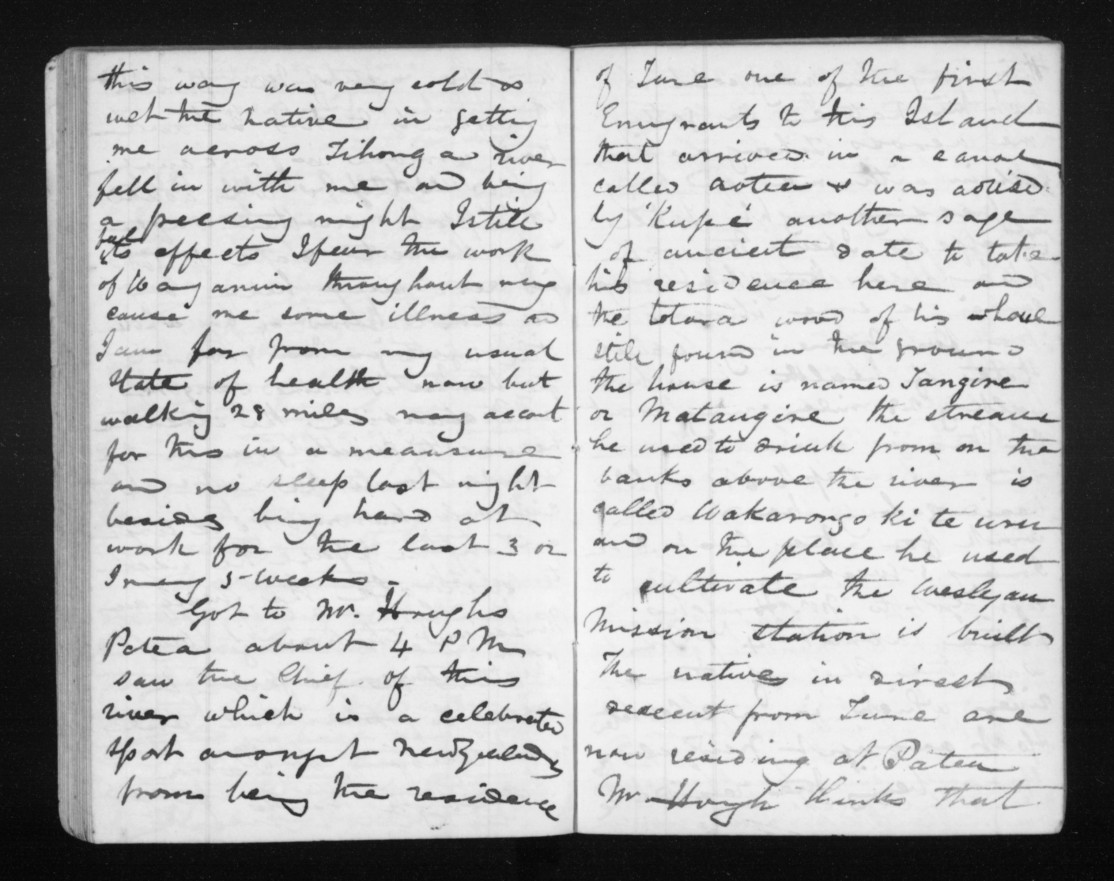 this way was very cold as
wet the native in getting
me across Tihonga river
fell in with me and being
a peesing night I still
feel its effects I fear the work
of Waganui throughout may
cause me some illness as
I am far from my usual
state of health now but
walking 28 miles may acout
for this in a meausure
and no sleep last night
besides being hard at
work for the last 3 or
I may 5 weeks -
Got to Mr. Houghs
Patea about 4 P M
saw the Chief of this
river which is a celebrated
spot amongst NewZealanders
from being the residence
of Turie one of the first
Emigrants to this Island
that arrived in a canoe
called aotea & was advised
by 'Kupe' another sage
of ancient date to take
his residence here and
the totara wood of his whare
still found in the ground
the house is named Tangire
or Matangire the stream
he used to drink from on the
banks above the river is
called Wakarongo ki te uru
and on the place he used
to cultivate the Wesleyan
Mission station is built
The natives in direct
descent from Turie are
now residing at Patea
Mr Hough thinks that